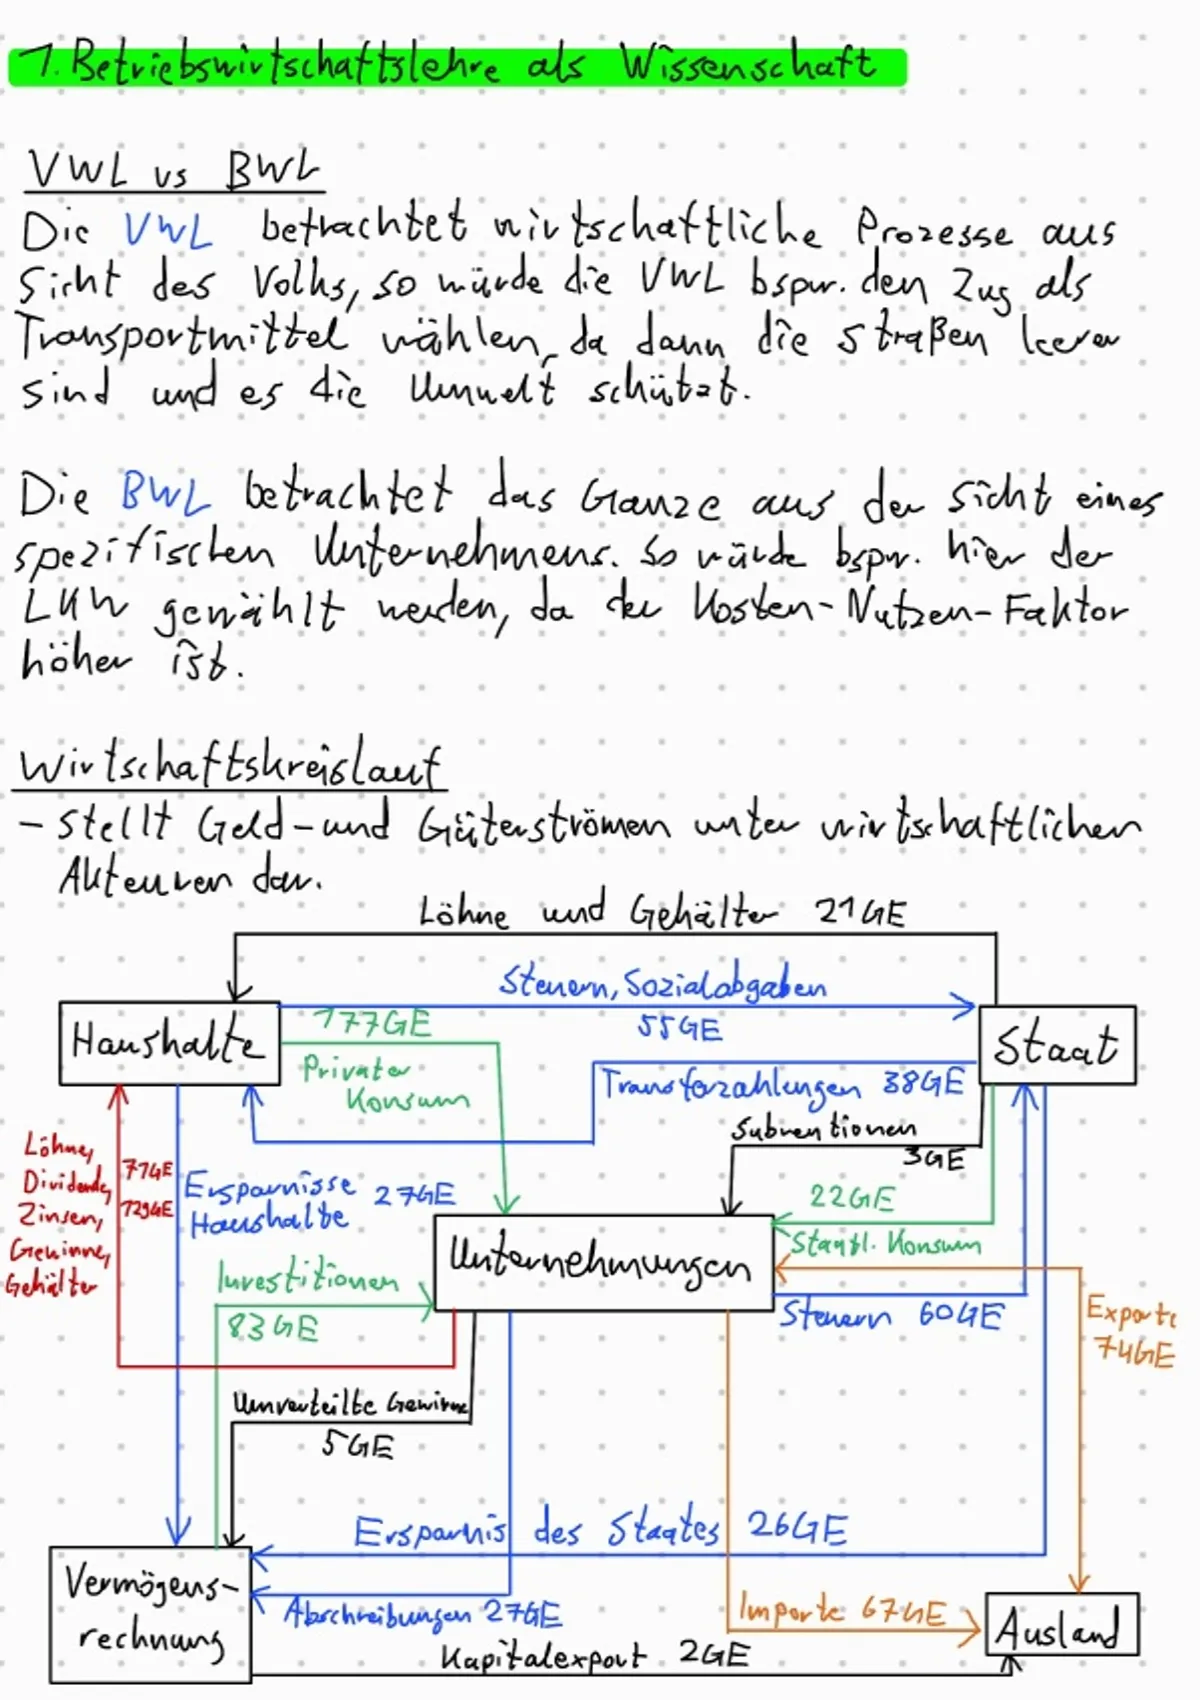 1. Betriebswirtschaftslehre als Wissenschaft
VWL vs BWL
Die VWL betrachtet wirtschaftliche Prozesse aus
Sicht des Volks, so würde die VWL bspw. den Zug als
Transportmittel wählen, da dann die Straßen leerer
sind und es die Umwelt schützt.
Die BWL betrachtet das Ganze aus der Sicht eines
spezifischen Unternehmens. So würde bspw. hier der
LKW gewählt werden, da der Kosten-Nutzen-Faktor
höher ist.
Wirtschaftskreislauf
- stellt Geld- und Güterströmen unter wirtschaftlichen
Akteuren dar.
Löhne und Gehälter 21GE
Steuern, Sozialabgaben
55GE
Haushalte
177GE
Privater
Konsum
Staat
Transferzahlungen 38GE
Subventionen
3GE
Löhne,
Dividende,
Zinsen,
Gewinne,
Gehälter
77GE
129GE
Ersparnisse 27GE
Haushalte
22GE
Staatl. Konsum
Unternehmungen
Investitionen
83GE
Steuern 60GE
Exporte
74GE
Unverteilte Gewinne
5GE
Ersparnis des Staates 26GE
Vermögens-
rechnung
Abschreibungen 27GE
Importe 67GE
Ausland
Kapitalexport 2GE